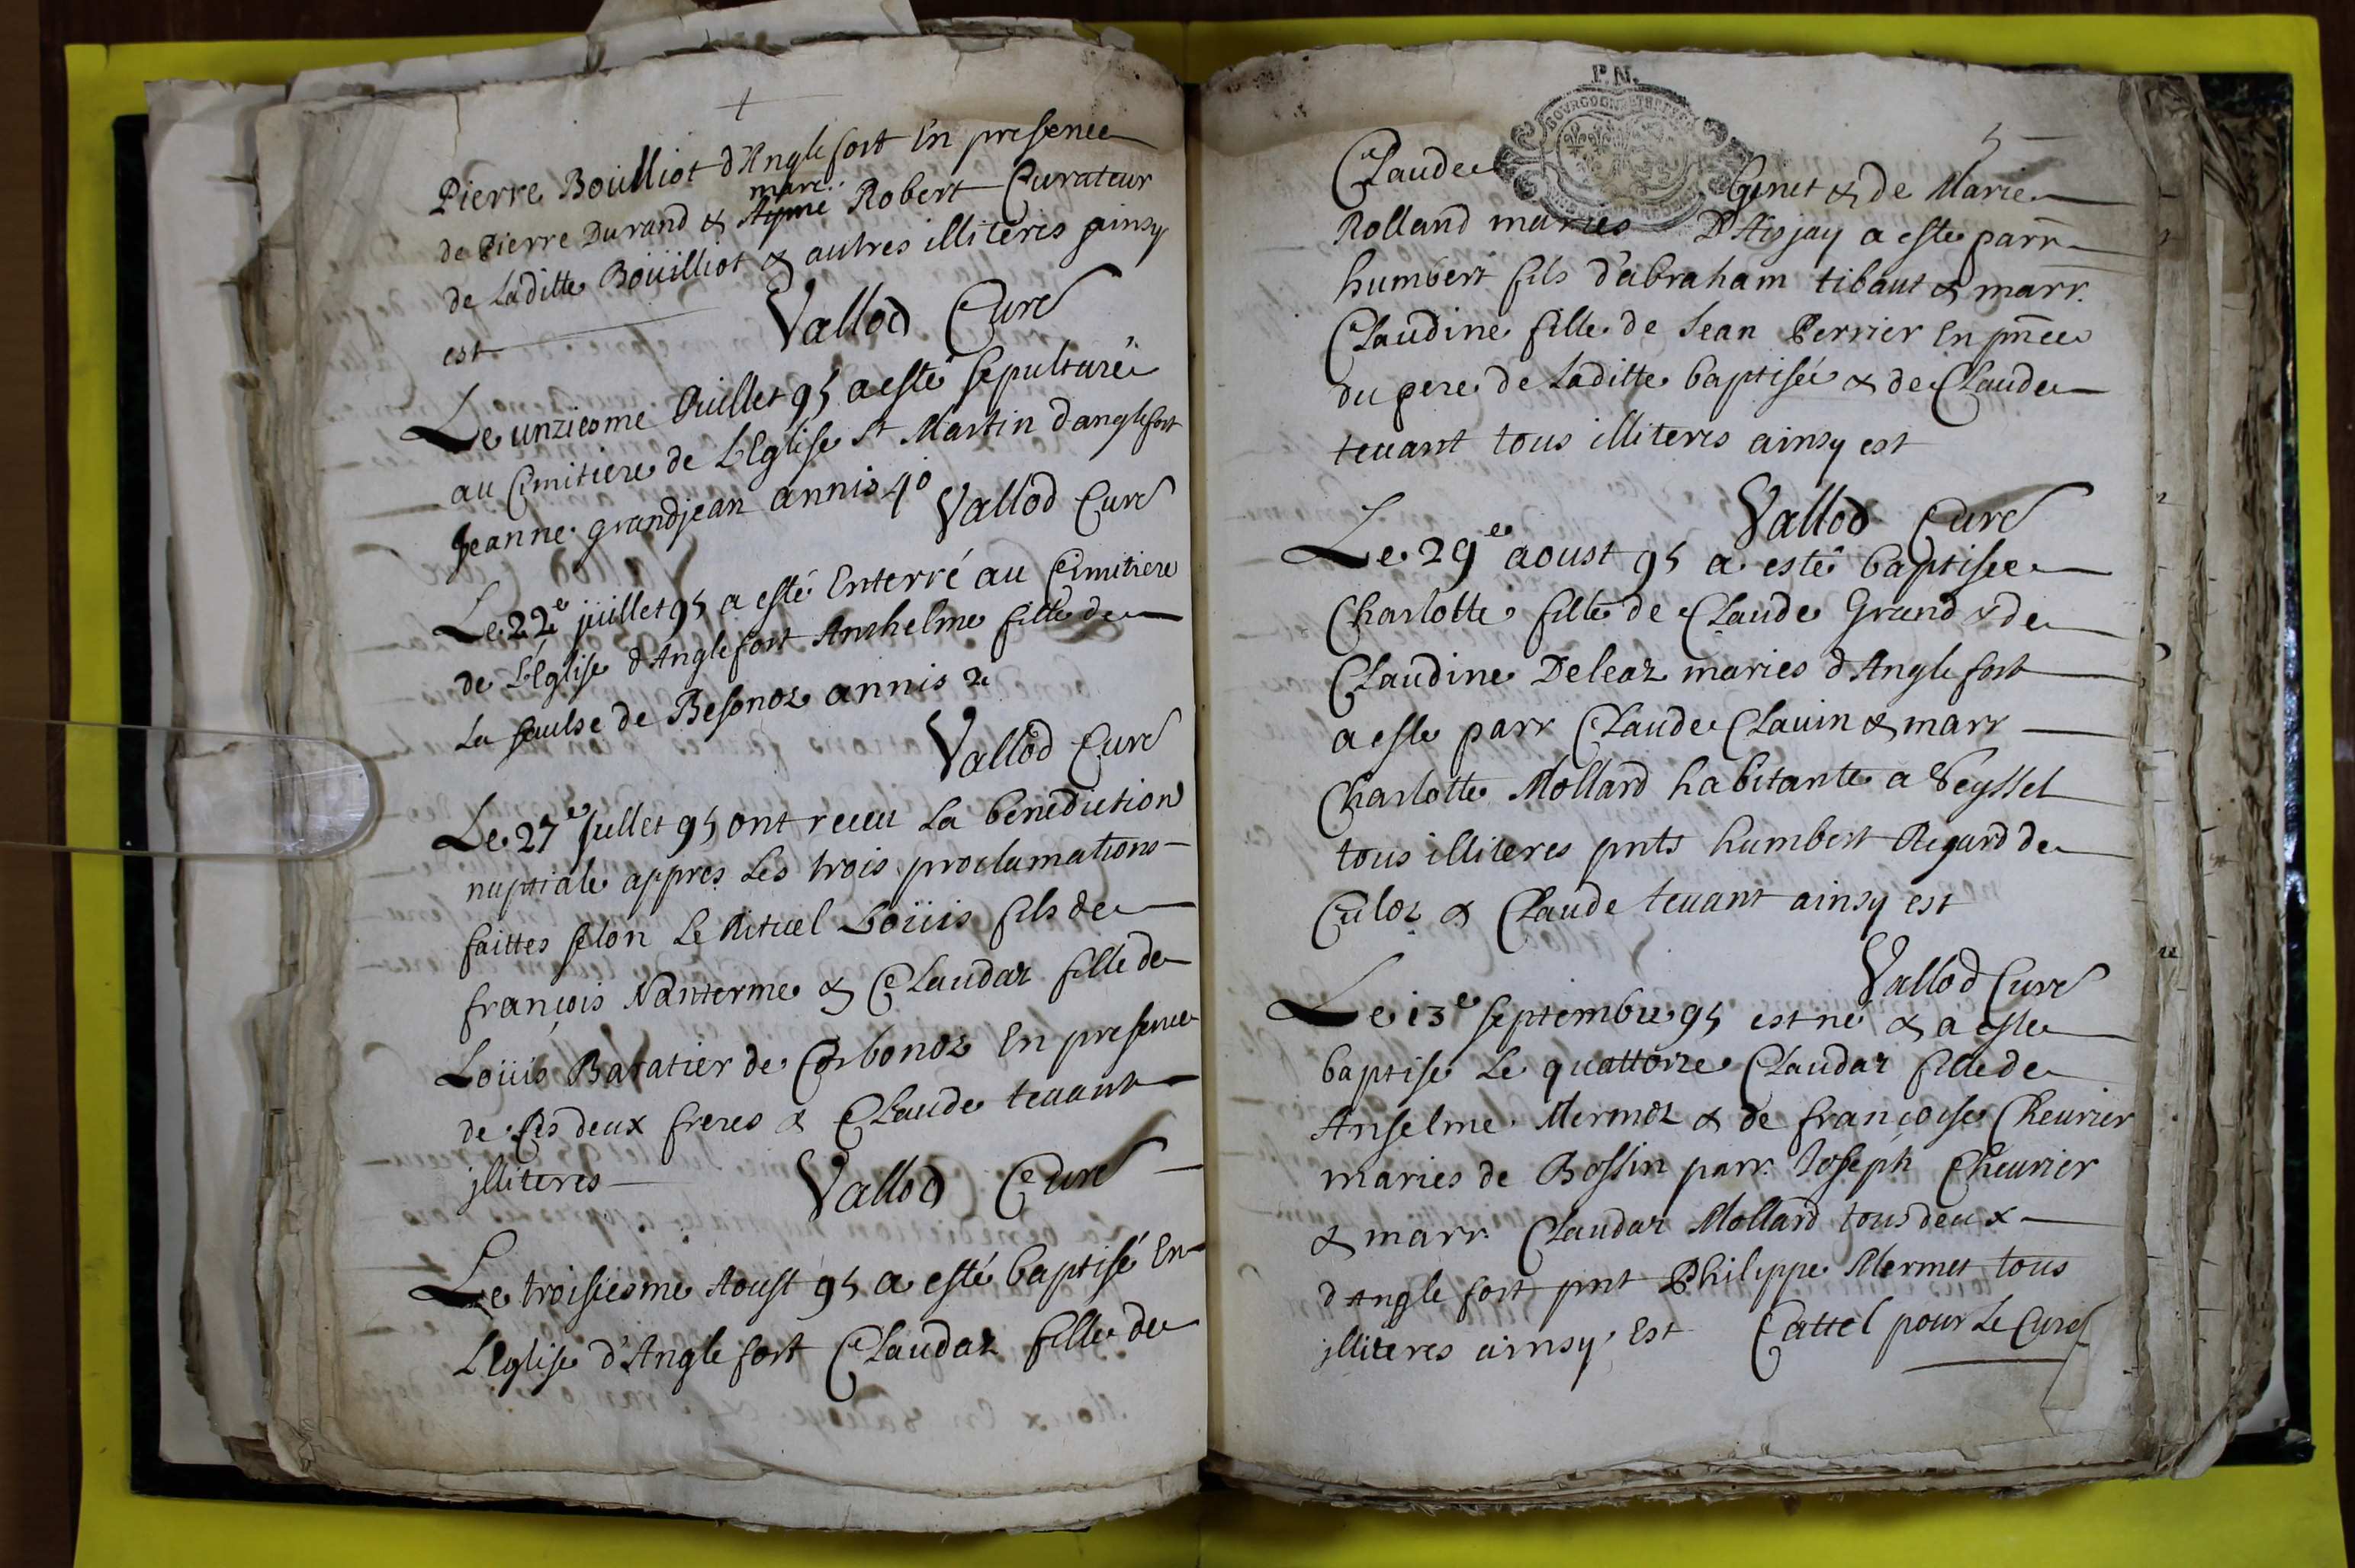 Pierre Boüilliot d'Anglefort En presence
de Pierre Durand & marc Robert Curateur
de Laditte Boüilliot & autres illiteres ainsy
est
Vallod Curé
Le unziesme Juillet 95 a esté sepulturée
au Cimitiere de L'Eglise St Martin d'anglefort
Jeanne grandjean annis 40
Vallod Curé
Le 22e juillet 95 a esté Enterré au Cimitiere
de L'Eglise d'Anglefort Anthelme fille de
La saulse de Besonoz annis 2
Vallod Curé
Le 27e Jullet 95 ont receu La benediction
nuptiale appres Les trois proclamations
faittes selon Le Rituel Loüis fils de
françois Nanterme & Claudaz fille de
Loüis Baratier de Corbonoz En presence
de ses deux freres & Claude teuant
jlliteres
Vallod Curé
Le troisiesme Aoust 95 a esté baptisé En
L'Eglise d'Anglefort Claudaz fille de
P.N.
5
Claude Genet & de Marie
Rolland maries D'Aisjay a este parr
humbert fils d'abraham tibaut & marr.
Claudine fille de Jean Perrier En pnce
du pere de Laditte baptisée & de Claude
teuant tous illiteres ainsy est
Vallod Curé
Le 29e aoust 95 a esté baptisee
Charlotte fille de Claude Grand & de
Claudine Deleaz maries d'Anglefort
a este parr Claude Clauin & marr
Charlotte Mollard habitante a Seyssel
tous illiteres pnts humbert Regard de
Culoz & Claude teuant ainsy est
Vallod Curé
Le 13e septembre 95 est né & a este
baptise Le quattorze Claudaz fille de
Anselme Mermoz & de françoise Cheurier
maries de Bossin parr. Joseph Cheurier
& marr. Claudaz Mollard tous deux
d'anglefort pnt Philippe Mermet tous
jlliteres ainsy Est Cattel pour Le Curé